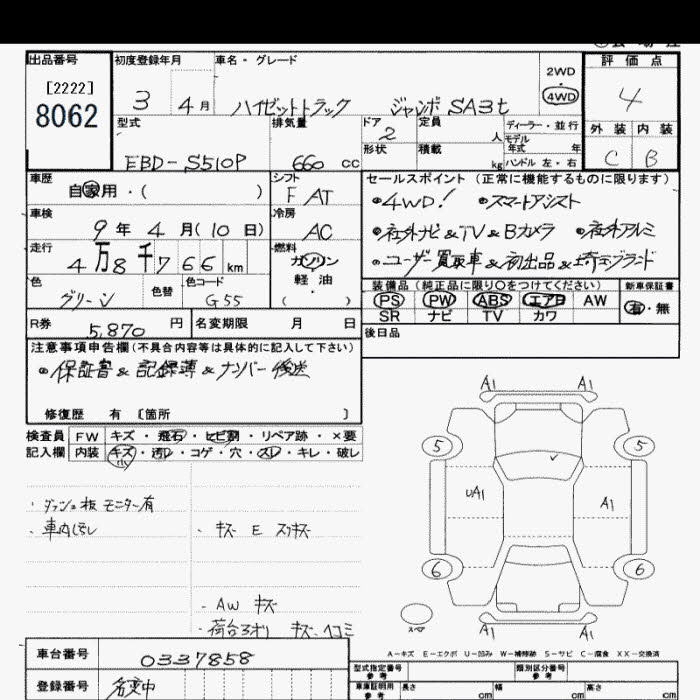 出品番号 初度登録年月 車名・グレード 評価点
[2222] 8062
3 4月 ハイゼットトラック ジャンボ SA3t 2WD 4WD 4
型式 排気量 ドア 2 定員 人 ディーラー・並行 外装 内装
モデル年式 年
EBD-S510P 660 cc 形状 積載 kg ハンドル 左・右 C B
車歴 シフト セールスポイント (正常に機能するものに限ります)
自家用・( ) F AT ・4WD! ・スマートアシスト
車検 冷房
9年 4月(10日) AC ・社外ナビ&TV&Bカメラ ・社外アルミ
走行 燃料
4万8千766km ガソリン 軽油 ( ) ・ユーザー買取車&初出品&埼玉ブランド
色 色替 色コード 装備品(純正品に限り〇をつけてください) 新車保証書
グリーン G55 PS PW ABS エアB AW 有・無
SR ナビ TV カワ
R券 5,870 円 名変期限 月 日 後日品
注意事項申告欄(不具合内容等は具体的に記入して下さい)
・保証書&記録簿&ナンバー後送
修復歴 有 〔箇所 〕
検査員 FW キズ・飛石・ヒビ割・リペア跡・×要
記入欄 内装 キズ・汚レ・コゲ・穴・スレ・キレ・破レ
小
・ダッシュ板 モニター有
・車内汚レ ・キズ E スリキズ
・AW キズ
・荷台アオリ キズ、ヘコミ
A1 A1
5 5
UA1 A1
6 6
スペア A1 A1
A-キズ E-エクボ U-凹み W-補修跡 S-サビ C-腐食 XX-交換済
車台番号 0337858
型式指定番号 参考 類別区分番号 参考
登録番号 名変中 車庫証明用 参考 長さ cm 幅 cm 高さ cm